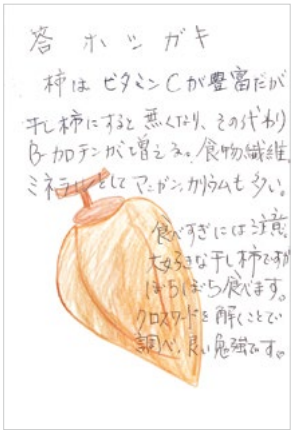 答 ホシガキ
柿は ビタミンCが豊富だが
干し柿にすると無くなり、その代わり
B-カロテンが増える。食物繊維、
ミネラルとしてマンガン、カリウムも多い。
食べすぎには注意。
大好きな干し柿ですが
ぼちぼち食べます。
クロスワードを解くことで
調べ、良い勉強です。